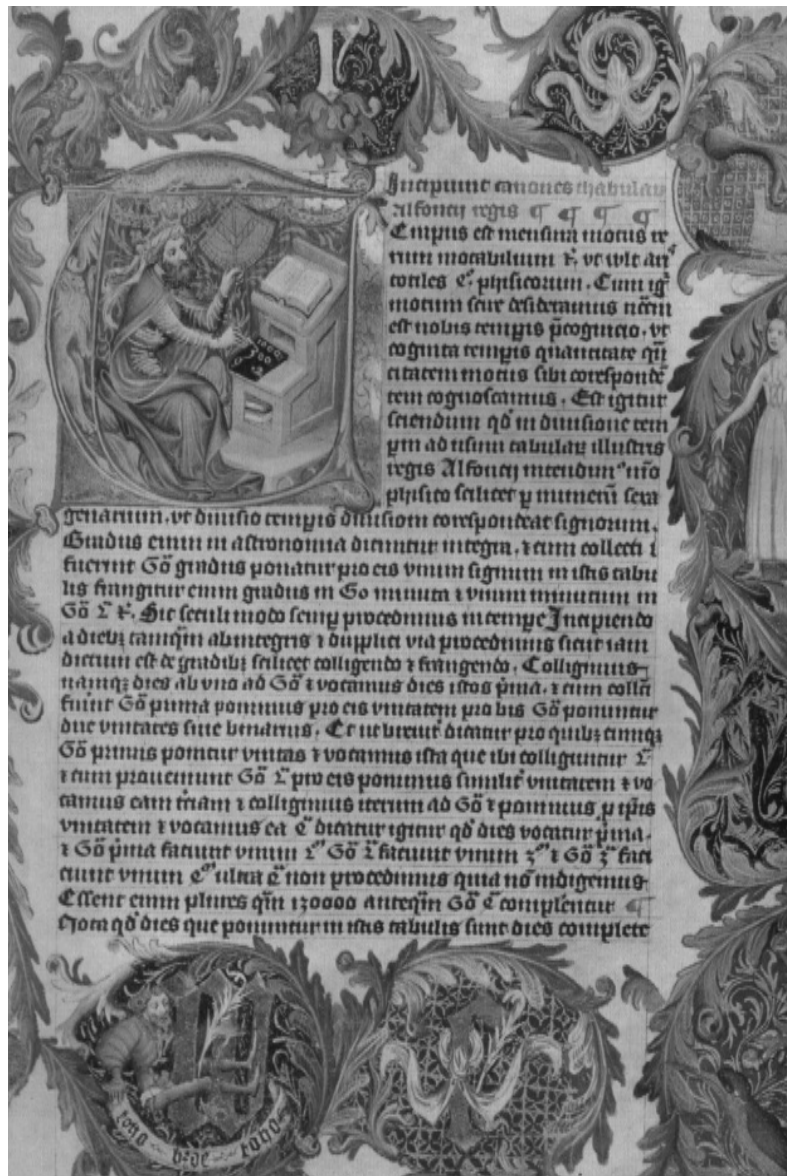 Incipiunt canones thabulaꝝ
Alfoncij regis ¶ ¶ ¶ ¶
Tempus est mensura motus re
rum mobilium ut vult ari
totiles phisicorum. Cum igr̄
motum scire desideramus
est nobis temp̄is p̄cognicio. vt
cognita temp̄is quantitate qn̄
titatem motus sibi coresponde
tem cognoscamus. Est igitur
sciendum qd̄ in diuisione tem
ad usum tabulaꝝ illustris
regis Alfoncij
phisico scilicet p̄ sexa
genarium. vt diuisio temp̄is diuisioni corespondeat signorum.
Gradus enim in astronomia dicuntur integra. ⁊ cum collecti
fuerint 60 gradus ponatur pro eis vnum signum in istis tabu
lis frangitur enim gradus in 60 minuta ⁊ vnum minutum in
60 Sic seculi modo semp̄ procedimus in tempe Incipiendo
a diebꝫ tamqm̄ ab integris ⁊ dupplici via procedimus sicut iam
dictum est de gradibꝫ scilicet colligendo ⁊ frangendo. Colligimus
namqꝫ dies ab vno ad 60 ⁊ vocamus dies istos p̄ma. ⁊ cum
fuint 60 prima ponimus pro eis vnitatem pro bis 60 ponuntur
due vnitates siue binarius. Et ut dicatur pro quibꝫ cumqꝫ
60 primis ponitur vnitas ⁊ vocamus ista que ibi colliguntur
⁊ cum proueniunt 60 pro eis ponimus vnitatem ⁊ vo
camus eam ⁊ colligimus iterum ad 60 ⁊ ponimus p̄ ip̄is
vnitatem ⁊ vocamus ea dicatur igitur qd̄ dies vocatur p̄ma.
⁊ 60 p̄ma faciunt vnum 60 faciunt vnum ⁊ 60 faci
ciunt vnum ultra non procedimus quia nō indigemus
Essent enim plures qm̄ 130000 anteqm̄ 60 complentur ¶
Nota qd̄ dies que ponuntur in istis tabulis sunt dies complete